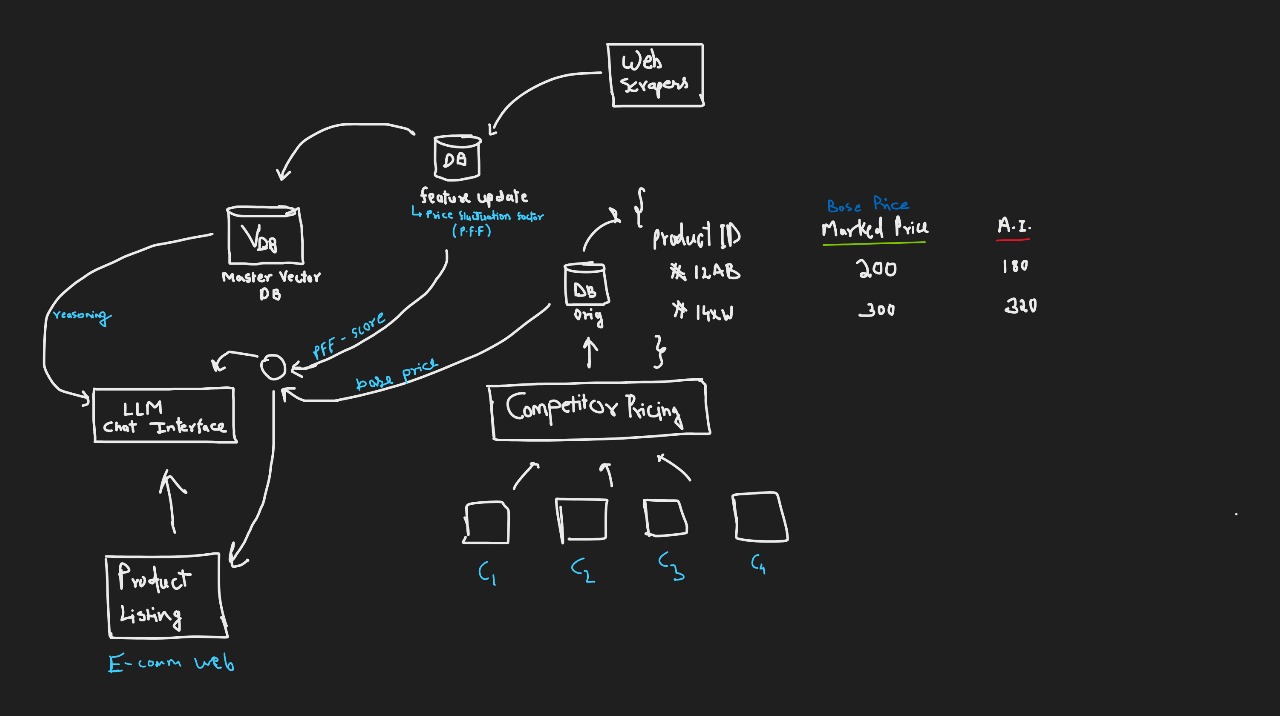 Web
Scrapers
DB
feature update
↳ Price fluctuation factor
(P.F.F)
VDB
Master Vector
DB
reasoning
PFF-score
base price
LLM
Chat Interface
Product
Listing
E-comm web
DB
Orig
{
Product ID
Base Price
Marked Price
A.I.
* 12AB
200
180
* 14XW
300
320
}
Competitor Pricing
C1
C2
C3
C4